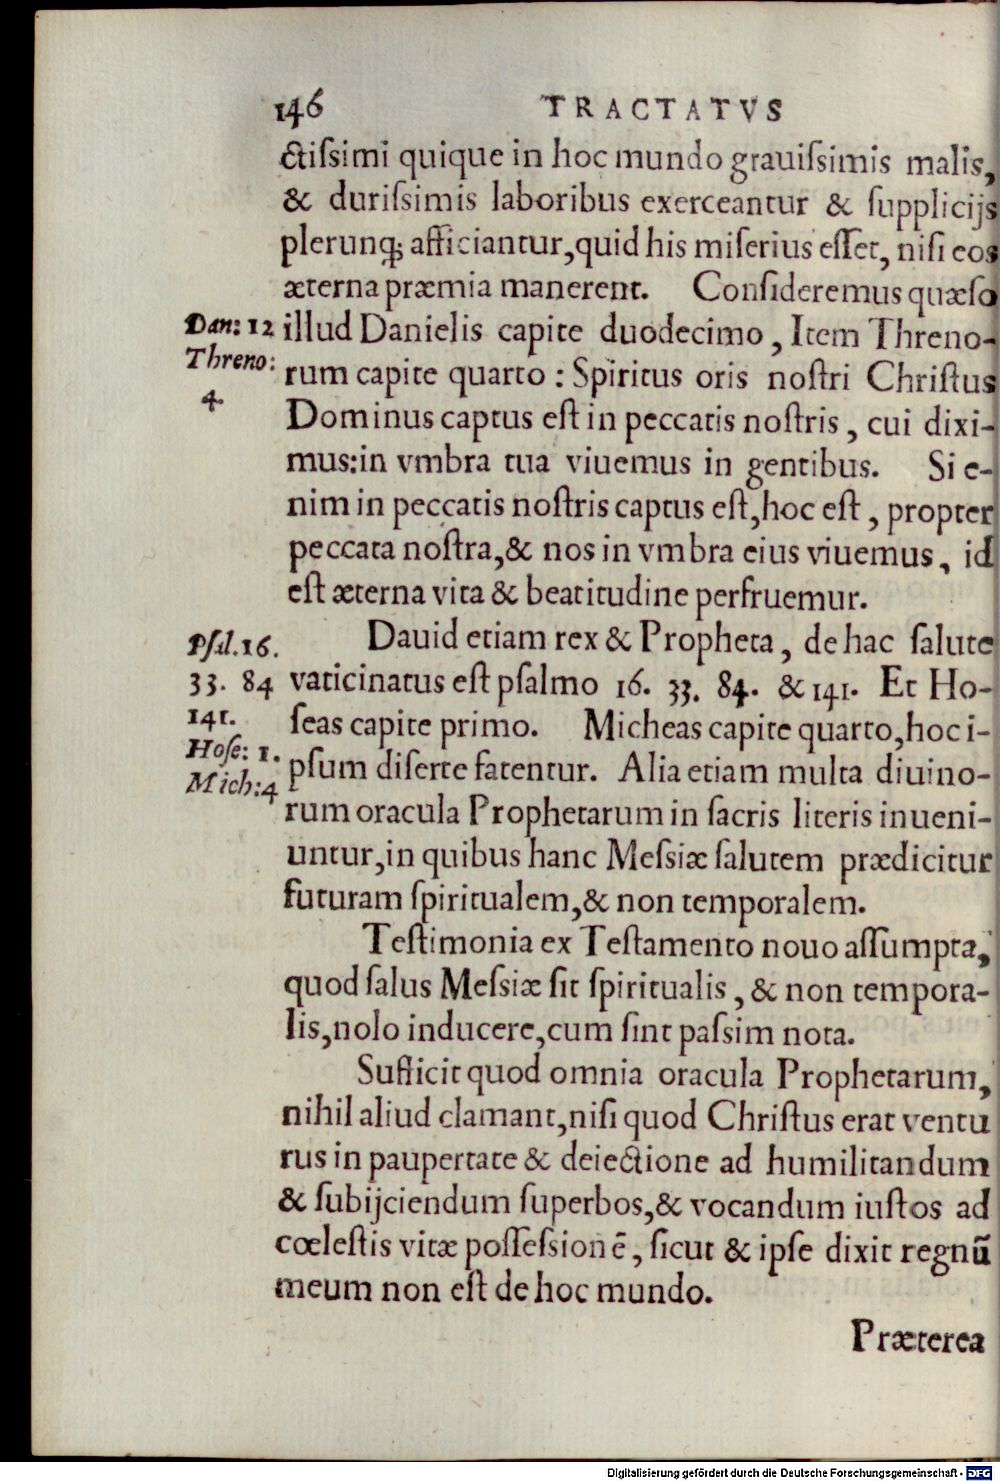 146 TRACTATVS
ctiſsimi quique in hoc mundo grauiſsimis malis,
& duriſsimis laboribus exerceantur & ſupplicijs
plerunq; afficiantur,quid his miſerius eſſet, niſi eos
æterna præmia manerent. Conſideremus quæſo
Dan: 12 illud Danielis capite duodecimo, Item Threno-
Threno: rum capite quarto : Spiritus oris noſtri Chriſtus
4. Dominus captus eſt in peccatis noſtris, cui dixi-
mus:in vmbra tua viuemus in gentibus. Si e-
nim in peccatis noſtris captus eſt,hoc eſt, propter
peccata noſtra,& nos in vmbra eius viuemus, id
eſt æterna vita & beatitudine perfruemur.
Pſal.16. Dauid etiam rex & Propheta, de hac ſalute
33. 84 vaticinatus eſt pſalmo 16. 33. 84. & 141. Et Ho-
141. ſeas capite primo. Micheas capite quarto,hoc i-
Hoſe: 1. pſum diſerte fatentur. Alia etiam multa diuino-
Mich:4 rum oracula Prophetarum in ſacris literis inueni-
untur,in quibus hanc Meſsiæ ſalutem prædicitur
futuram ſpiritualem,& non temporalem.
Teſtimonia ex Teſtamento nouo aſſumpta,
quod ſalus Meſsiæ ſit ſpiritualis, & non tempora-
lis,nolo inducere,cum ſint paſsim nota.
Sufficit quod omnia oracula Prophetarum,
nihil aliud clamant,niſi quod Chriſtus erat ventu
rus in paupertate & deiectione ad humilitandum
& ſubijciendum ſuperbos,& vocandum iuſtos ad
cœleſtis vitæ poſſeſsionẽ, ſicut & ipſe dixit regnũ
meum non eſt de hoc mundo.
Præterea
Digitalisierung gefördert durch die Deutsche Forschungsgemeinschaft - DFG